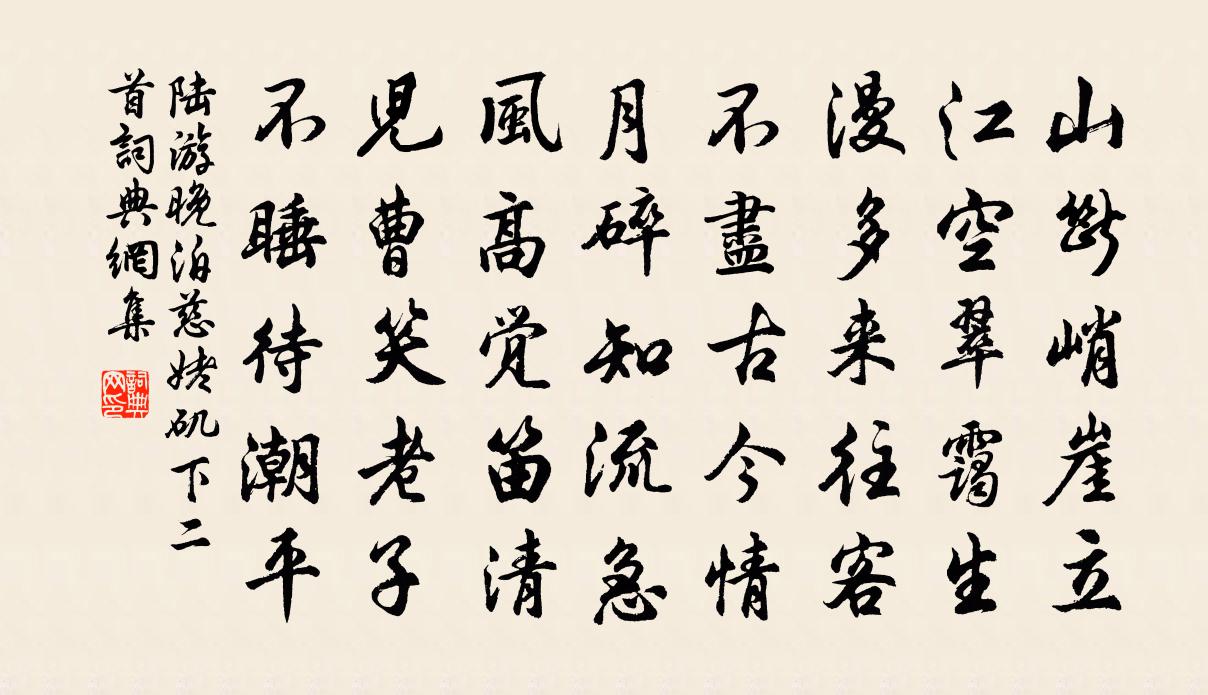 山斷峭崖立
江空翠靄生
漫多来往客
不盡古今情
月碎知流急
風高覚笛清
児曹笑老子
不睡待潮平
陆游晚泊慈姥矶下二
首詞典網集
詞典网印